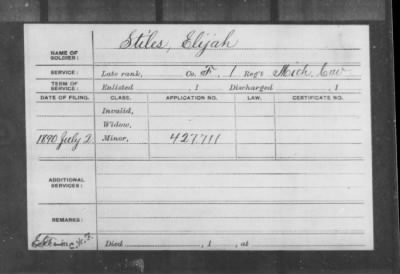 Stiles, Elijah
NAME OF SOLDIER:
SERVICE: Late rank, Co. F, 1 Reg't Mich Cav
TERM OF SERVICE: Enlisted , 1 Discharged , 1
DATE OF FILING. CLASS. APPLICATION NO. LAW. CERTIFICATE NO.
Invalid,
Widow,
1890 July 2 Minor, 427711
ADDITIONAL SERVICES:
REMARKS:
Died , 1 , at